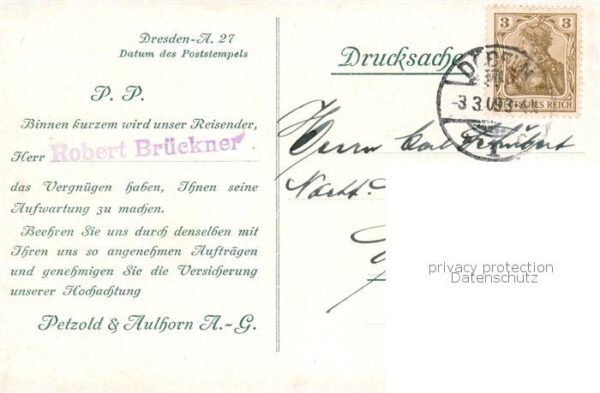 Dresden-A. 27
Datum des Poststempels
P. P.
Binnen kurzem wird unser Reisender,
Herr Robert Brückner
das Vergnügen haben, Ihnen seine
Aufwartung zu machen.
Beehren Sie uns durch denselben mit
Ihren uns so angenehmen Aufträgen
und genehmigen Sie die Versicherung
unserer Hochachtung
Petzold & Aulhorn A.-G.
Drucksache
3 3
DEUTSCHES REICH
3.3.09
1
Herrn Carl
privacy protection
Datenschutz